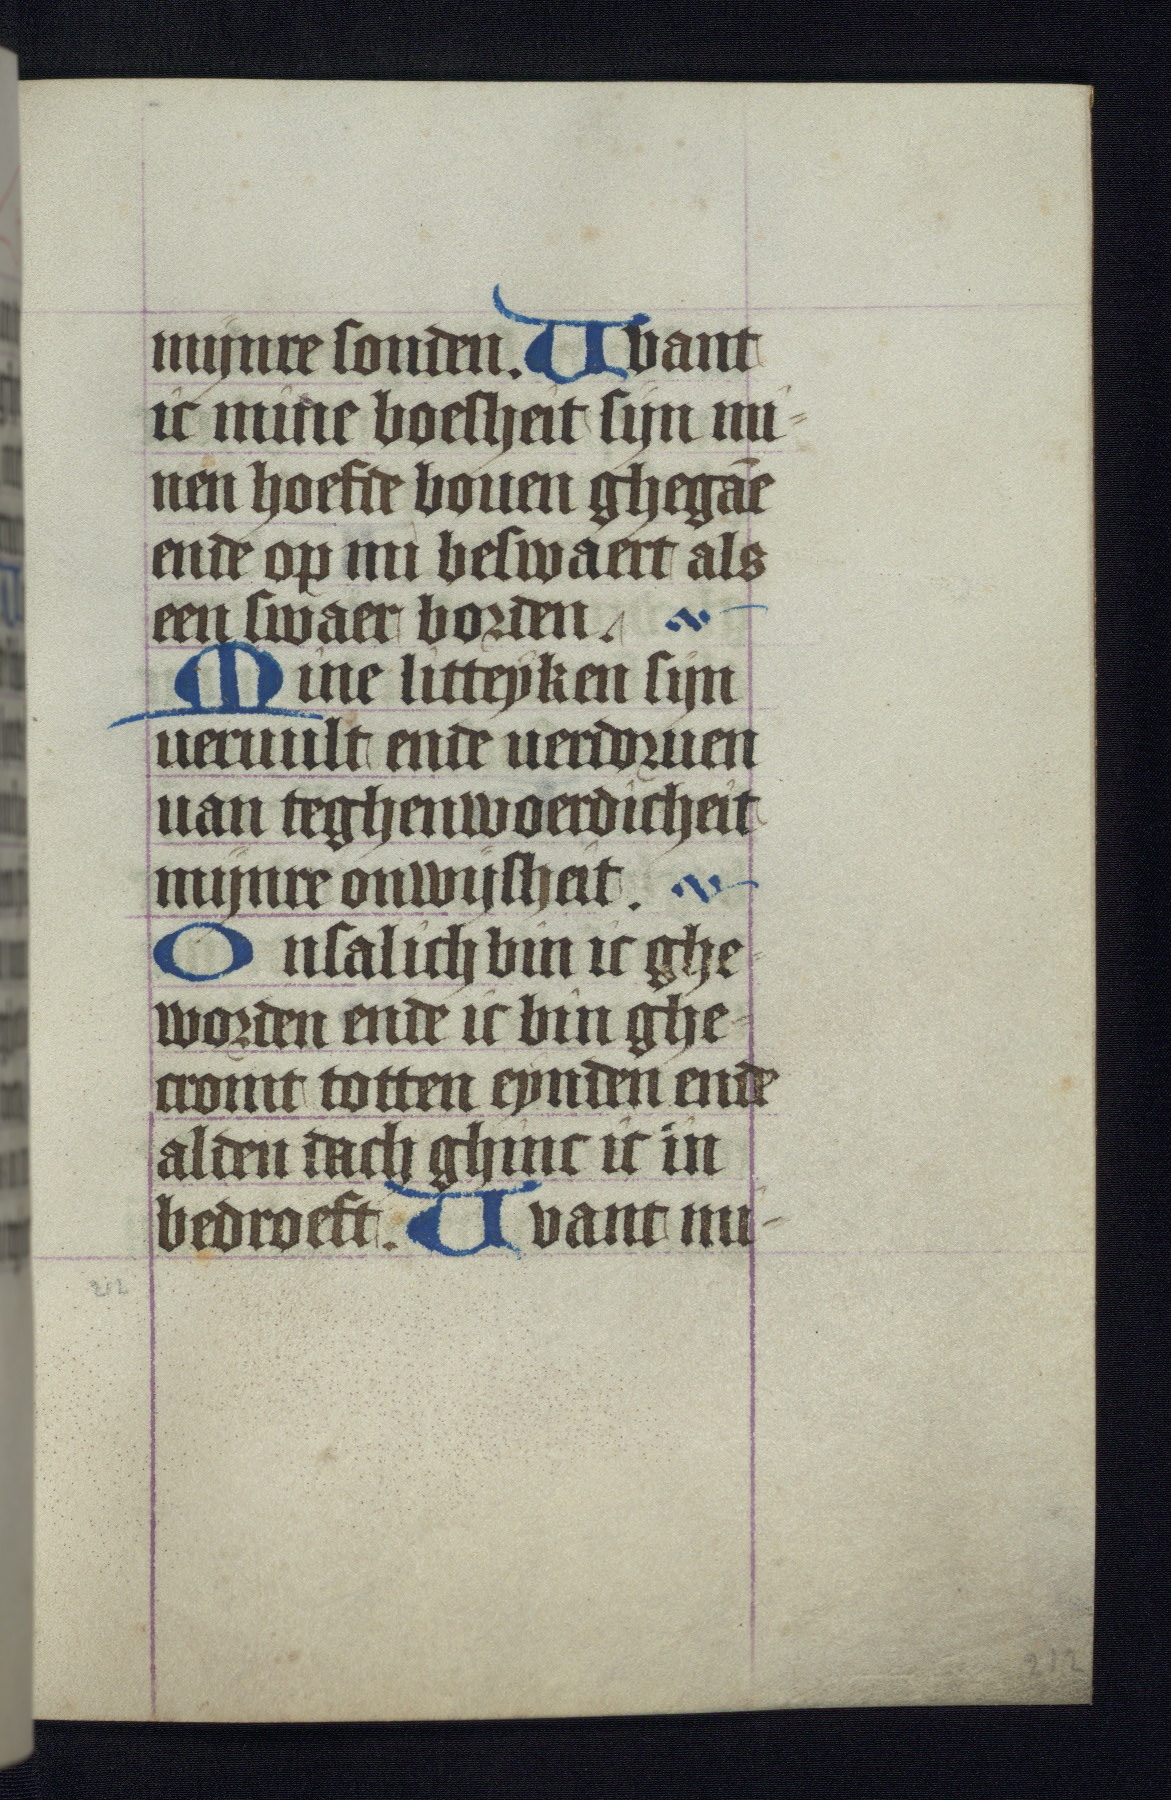 mijnre sonden. Uvant
ic mine boesheit sijn mi-
nen hoefde bouen ghegāe
ende op mi beswaert als
een swaer borden.
Mine litteyken sijn
veruult ende verdoruen
uan teghenwoerdicheit
mijnre onwijsheit.
Onsalich bin ic ghe-
worden ende ic bin ghe-
cromt totten eynden ende
alden dach ghinc ic in
bedroeft. Uvant mi-
212
212